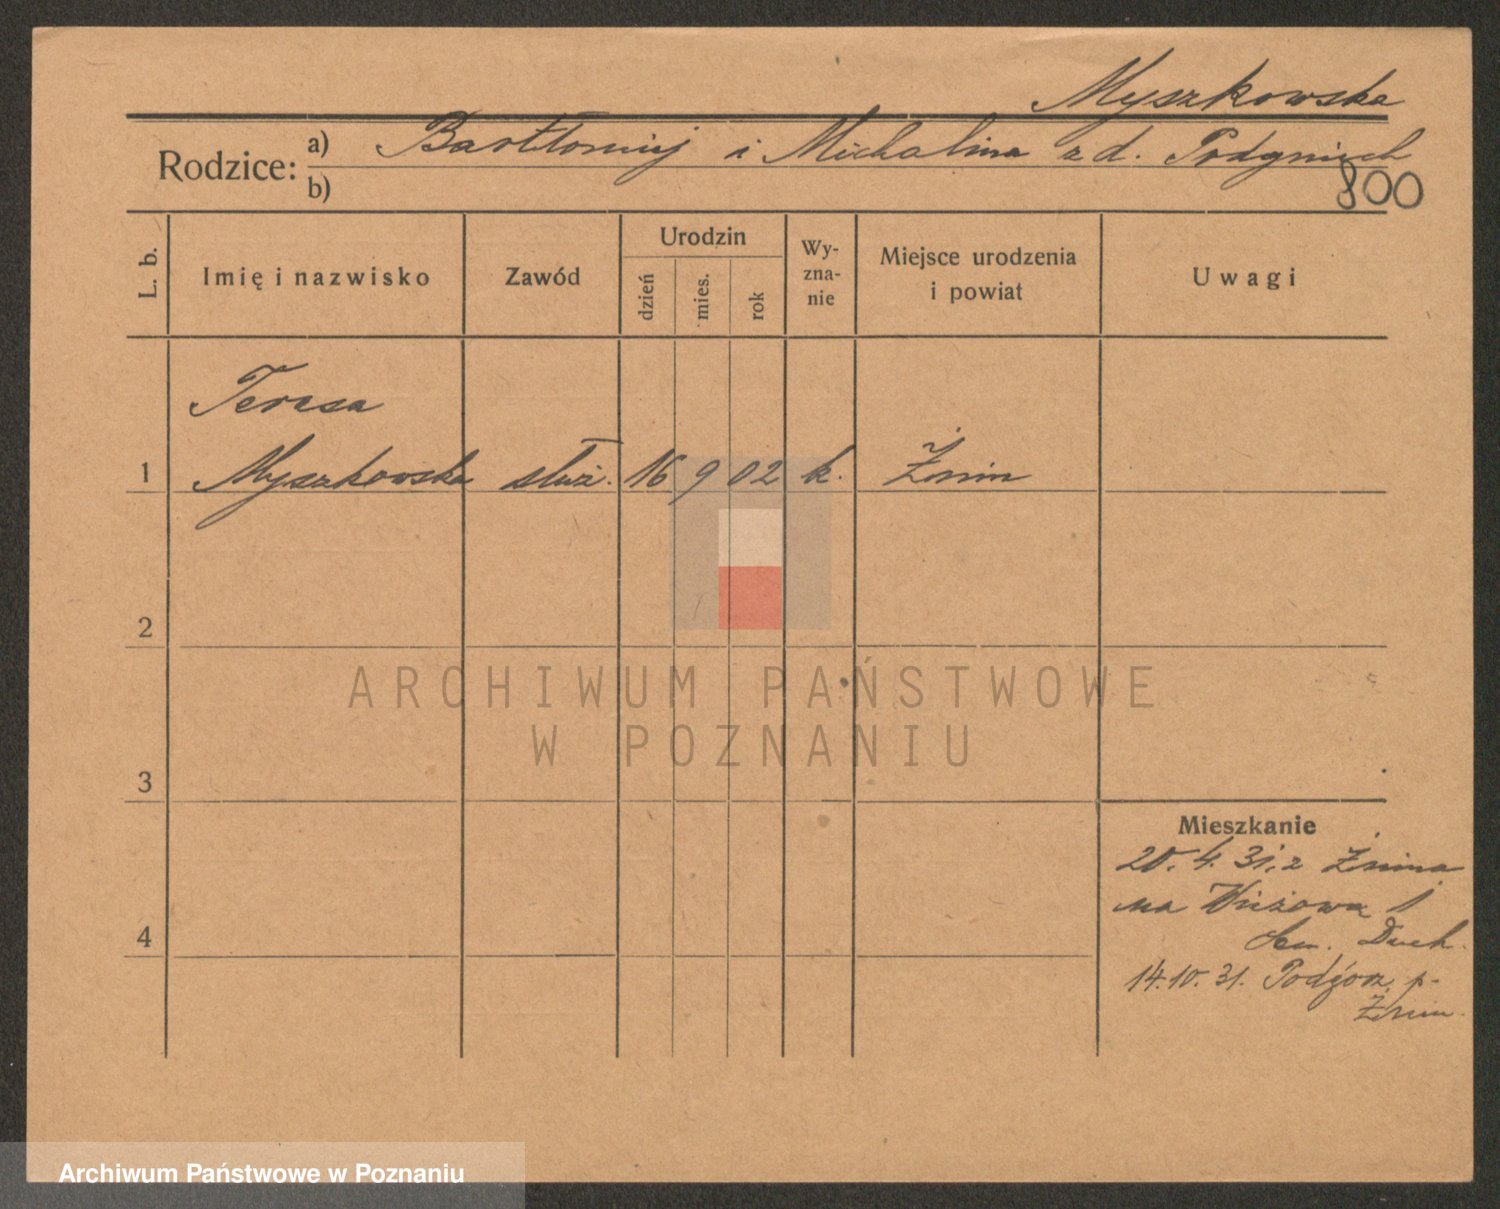 Myszkowska
Rodzice: a) Bartłomiej i Michalina z d. Podgniech
b)
800
L. b. Imię i nazwisko Zawód Urodzin dzień mies. rok Wy-zna-nie Miejsce urodzenia i powiat Uwagi
Teresa
1 Myszkowska służ. 16 9 02 k. Żnin
2
ARCHIWUM PAŃSTWOWE
W POZNANIU
3
Mieszkanie
20. 4. 31. z Żnina
na Wieżowa 1
4
Duch.
14.10.31. Podgórz. p.
Żnin.
Archiwum Państwowe w Poznaniu